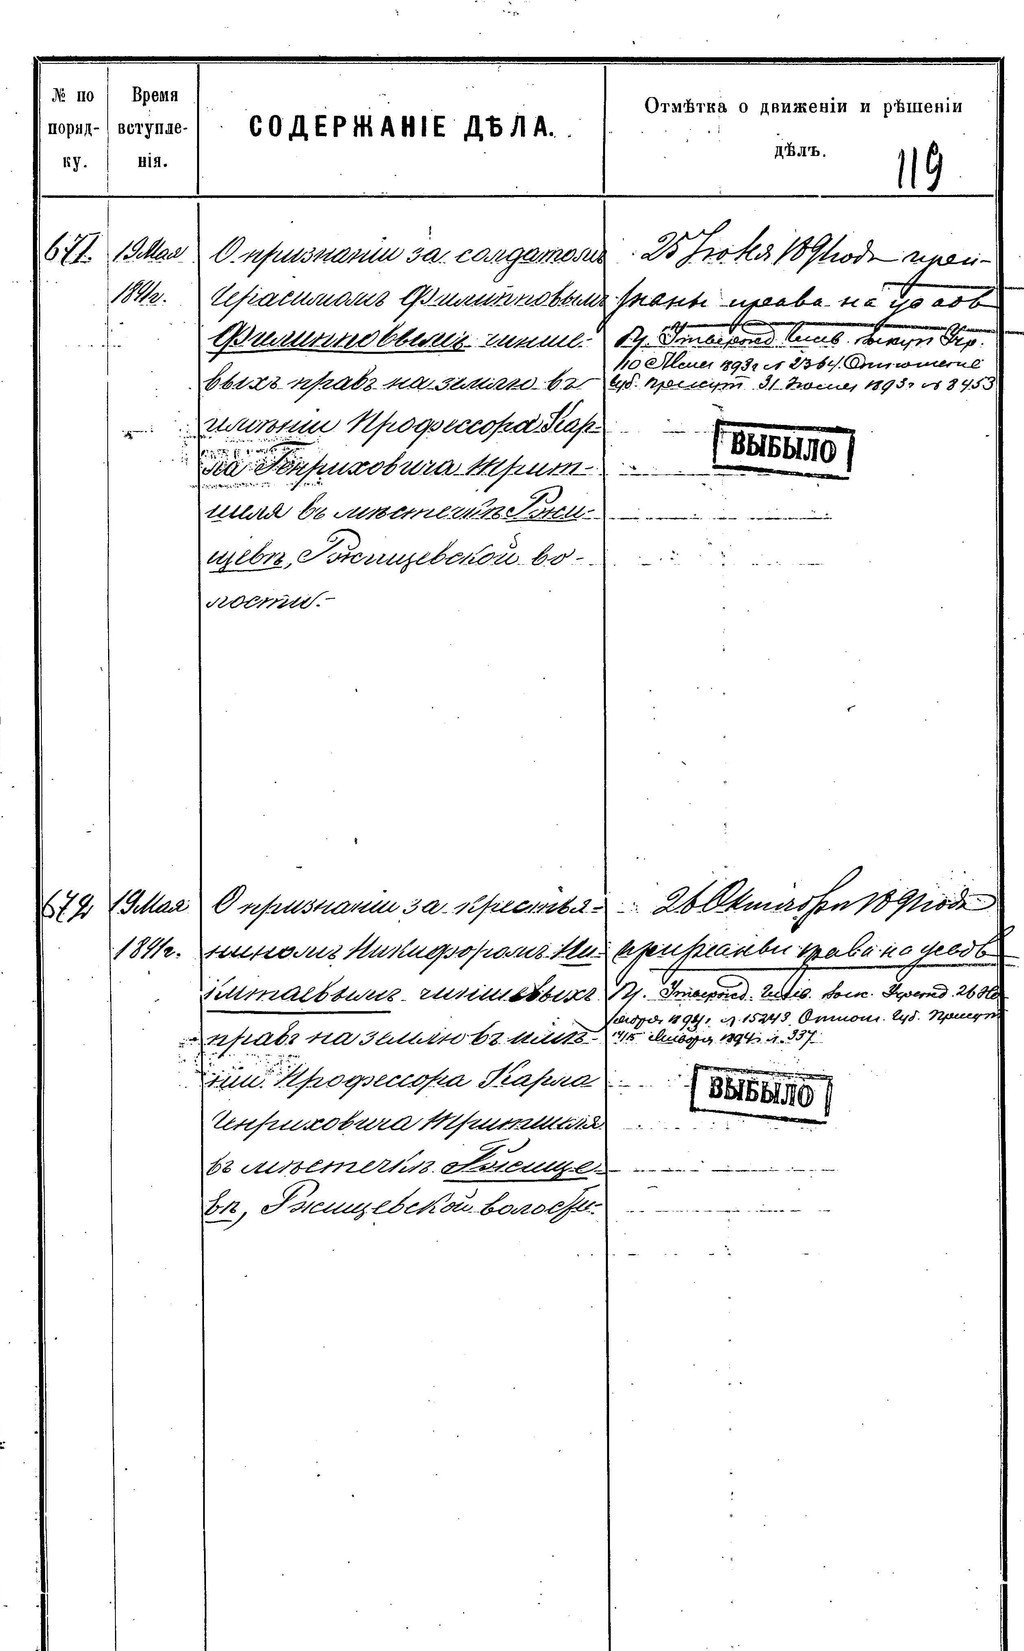 № по поряд- ку.
Время вступле- нія.
СОДЕРЖАНІЕ ДѢЛА.
Отмѣтка о движеніи и рѣшеніи дѣлъ.
119
671.
19 Мая
1891г.
О признаніи за солдатомъ
Герасимомъ Филипповымъ
Филипповымъ чинше-
выхъ правъ на землю въ
имѣніи Профессора Кар-
ла Генриховича Тритше-
ля въ мѣстечкѣ Ржи-
щевѣ, Ржищевской во-
лости.-
25 Іюня 1891 года приз-
наны права на
10 1893г № 2364. Отношение
Губ. Присут. 31 1893г № 8453
ВЫБЫЛО
672
19 Мая
1891г.
О признаніи за крестья-
ниномъ Никифоромъ Ни-
чиншевыхъ
правъ на землю въ имѣ-
ніи Профессора Карла
Генриховича Тритшеля
въ мѣстечкѣ Ржище-
вѣ, Ржищевской волости.
26 Октября 1891 года
права на
26
№ 15243. Отнош. Губ. Присут
Января 1894г № 337.
ВЫБЫЛО